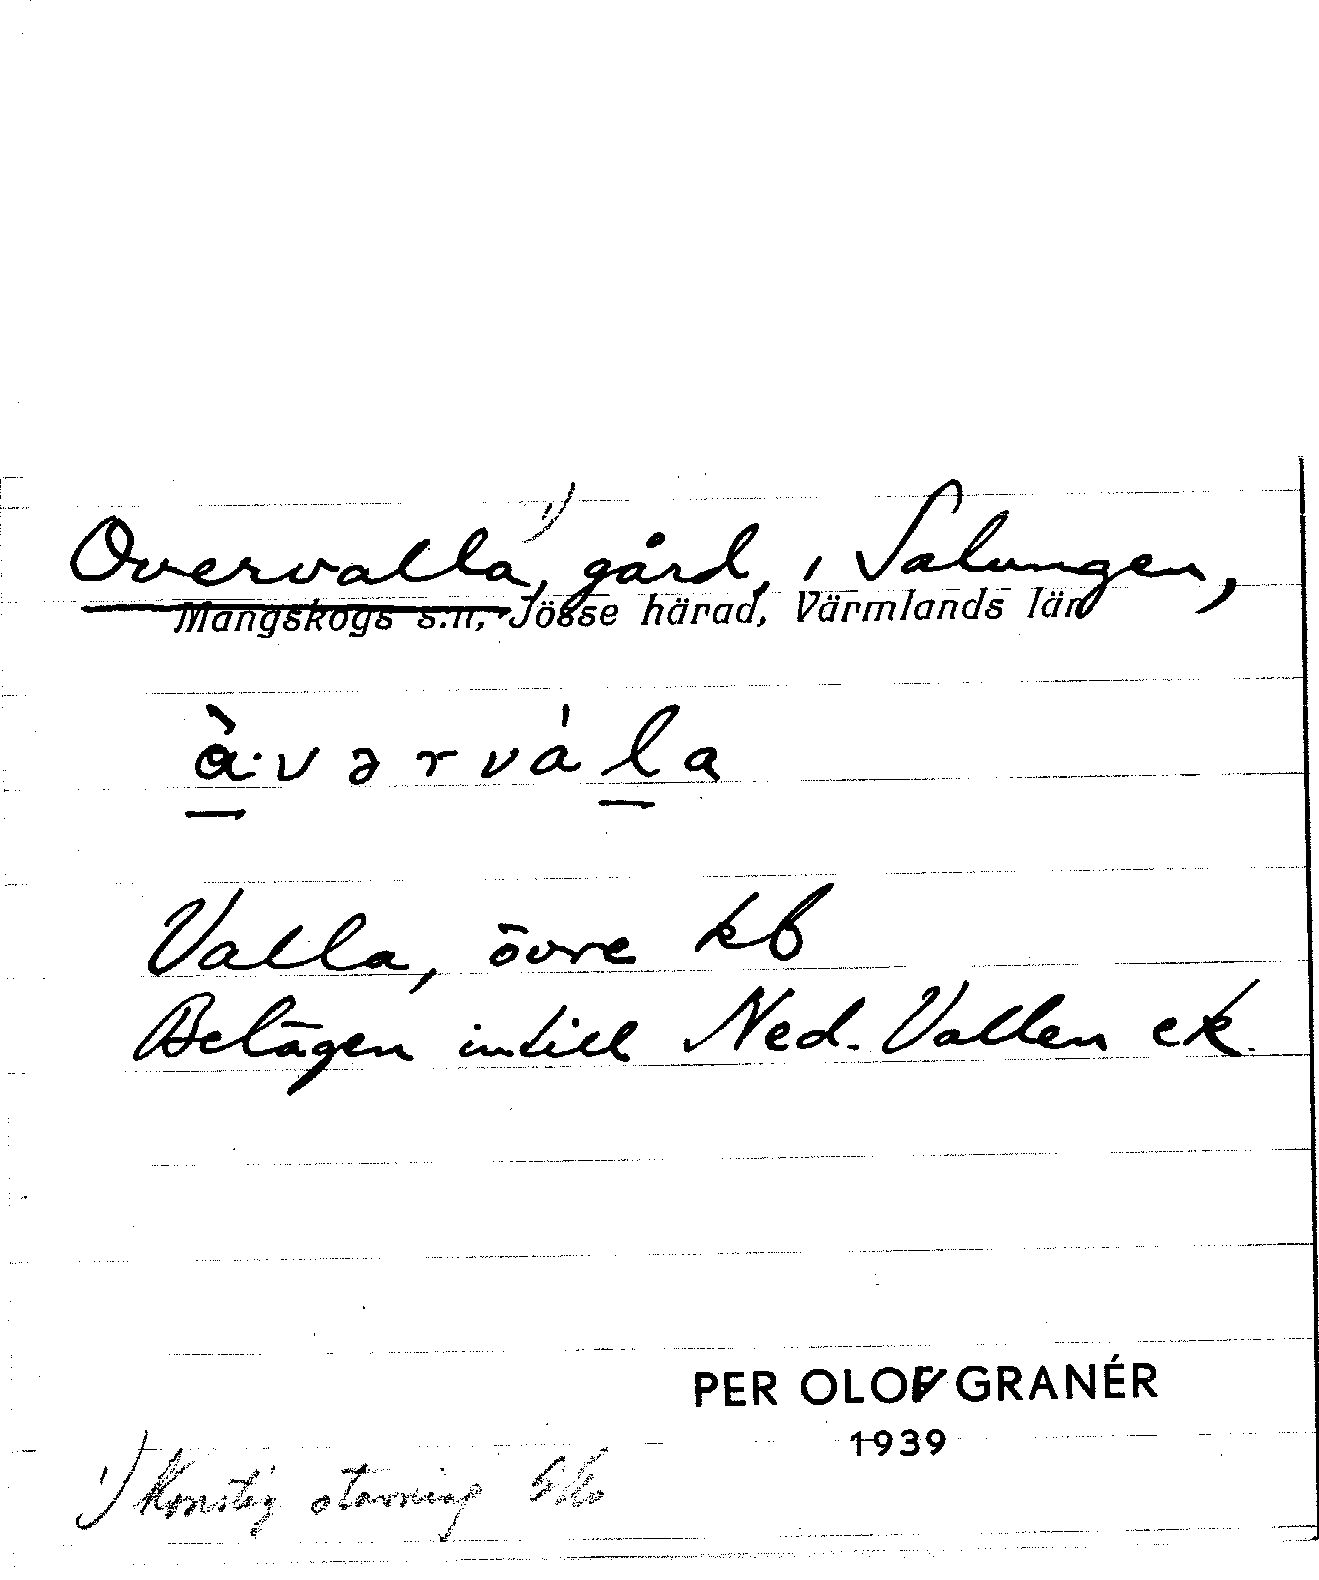 Overvalla, ¹⁾ gård, i Salungen,
Mangskogs s:n, Jösse härad, Värmlands län
à·vərvála
Valla, övre kb
Belägen intill Ned. Vallen ek.
PER OLOF GRANÉR
1939
¹⁾ Konstig stavning